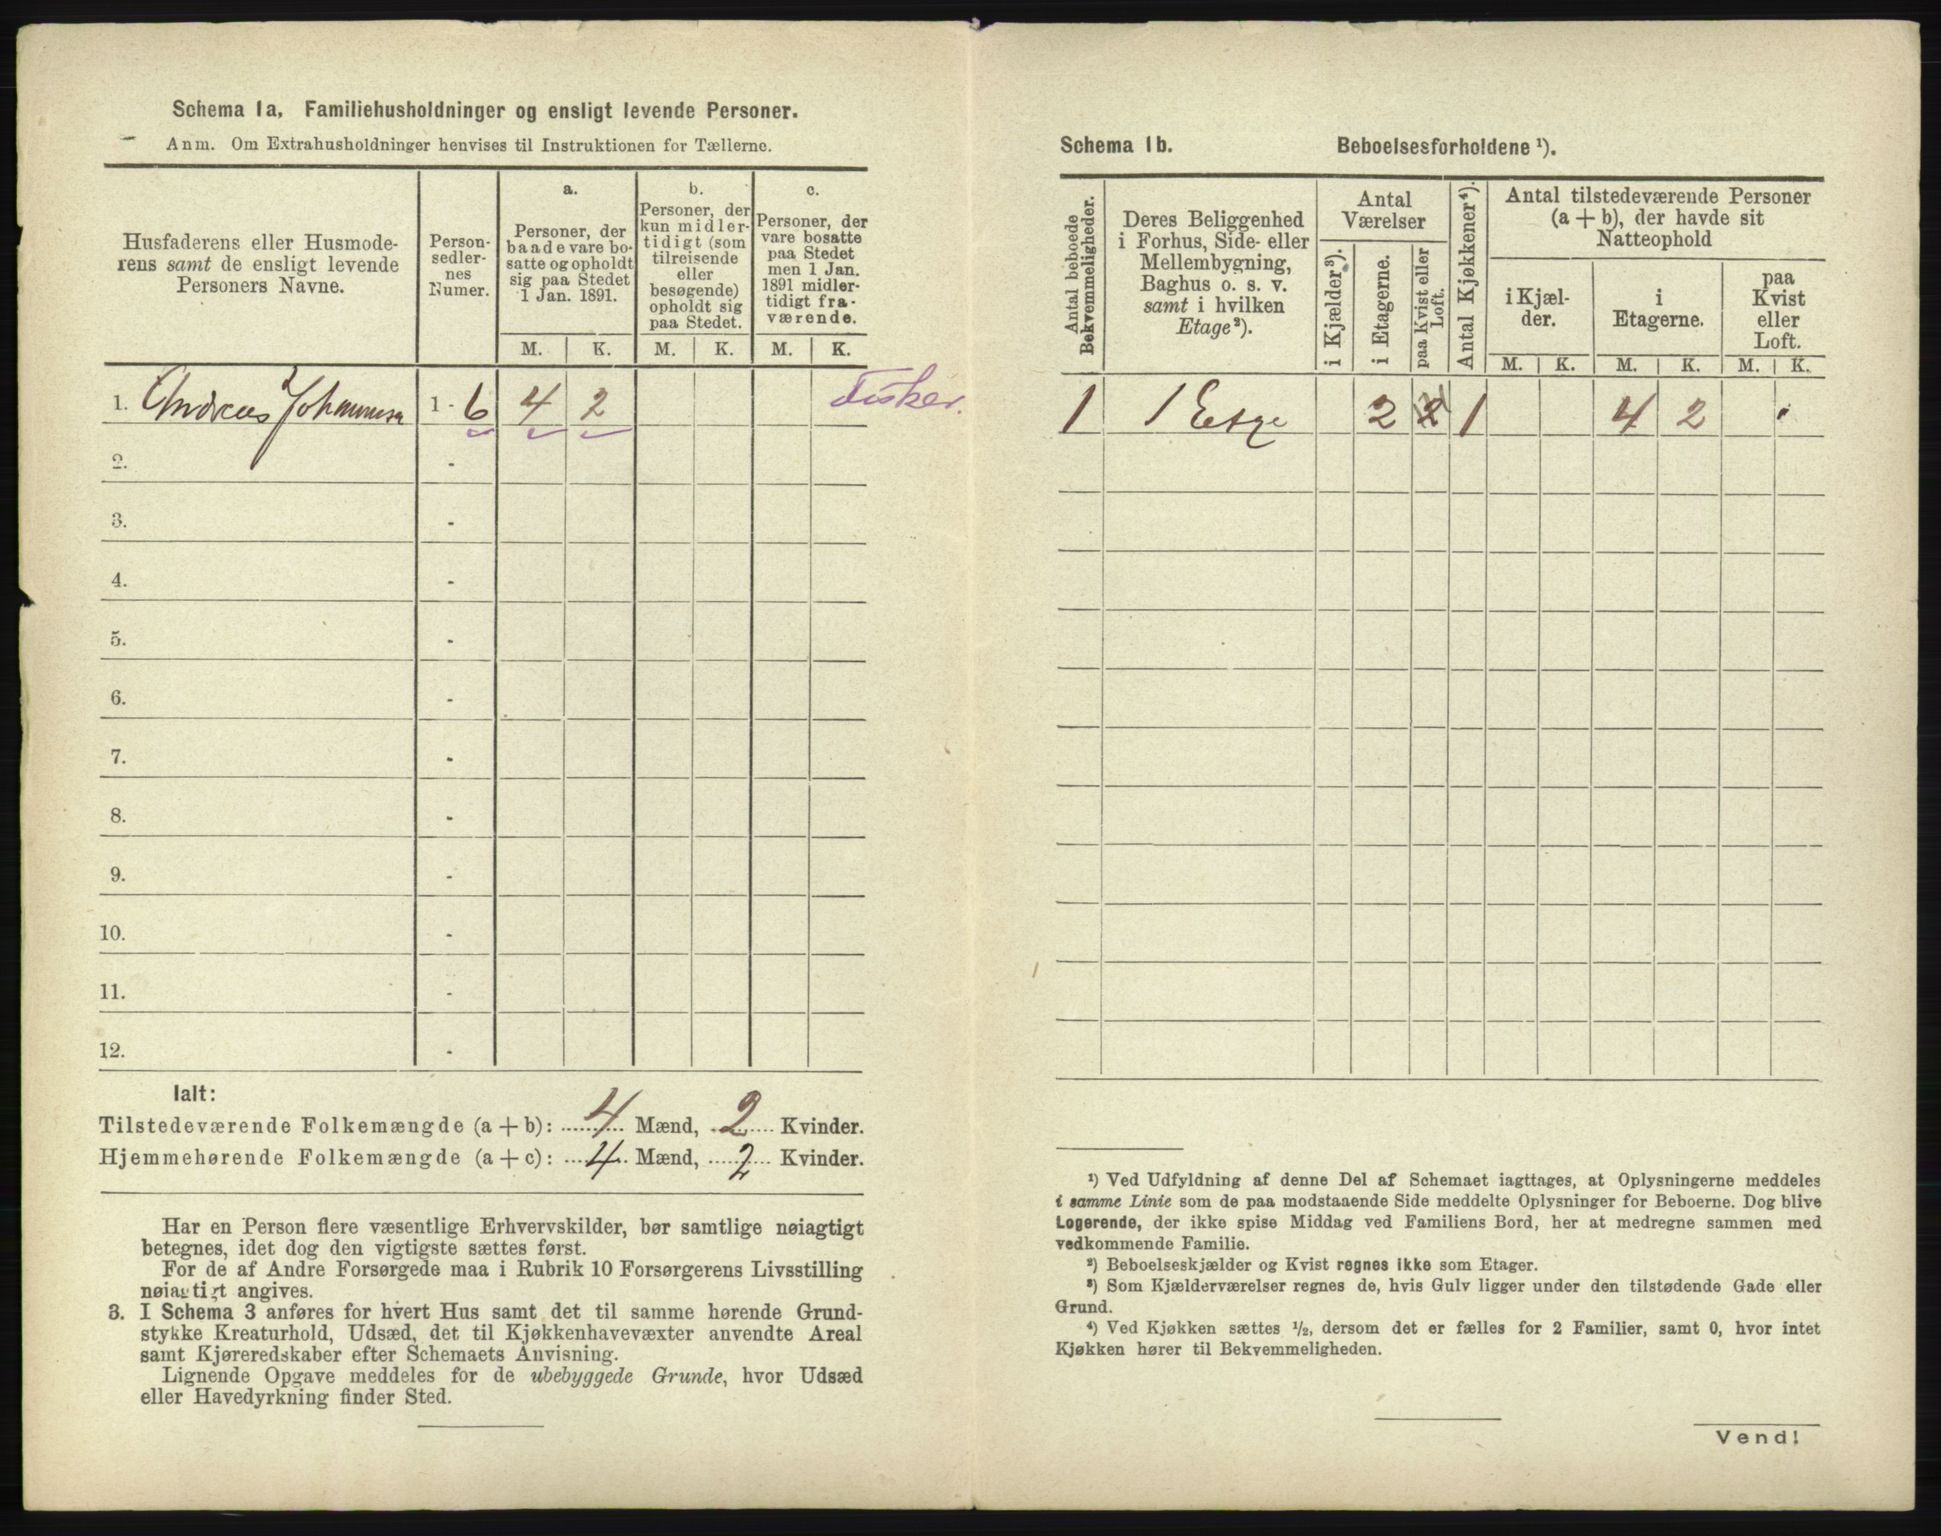 Schema 1a. Familiehusholdninger og ensligt levende Personer.
Anm. Om Extrahusholdninger henvises til Instruktionen for Tællerne.
Husfaderens eller Husmode-
rens samt de ensligt levende
Personers Navne.
Person-
sedler-
nes
Numer.
a.
Personer, der
baade vare bo-
satte og opholdt
sig paa Stedet
1 Jan. 1891.
b.
Personer, der
kun midler-
tidigt (som
tilreisende
eller
besøgende)
opholdt sig
paa Stedet.
c.
Personer, der
vare bosatte
paa Stedet
men 1 Jan.
1891 midler-
tidigt fra-
værende.
M. K. M. K. M. K.
1. Andreas Johannesen 1 - 6 4 2 Fisker.
2. -
3. -
4. -
5. -
6. -
7. -
8. -
9. -
10. -
11. -
12. -
Ialt:
Tilstedeværende Folkemængde (a + b): 4 Mænd, 2 Kvinder.
Hjemmehørende Folkemængde (a + c): 4 Mænd, 2 Kvinder.
Har en Person flere væsentlige Erhvervskilder, bør samtlige nøiagtigt
betegnes, idet dog den vigtigste sættes først.
For de af Andre Forsørgede maa i Rubrik 10 Forsørgerens Livsstilling
nøiagtigt angives.
3. I Schema 3 anføres for hvert Hus samt det til samme hørende Grund-
stykke Kreaturhold, Udsæd, det til Kjøkkenhavevæxter anvendte Areal
samt Kjøreredskaber efter Schemaets Anvisning.
Lignende Opgave meddeles for de ubebyggede Grunde, hvor Udsæd
eller Havedyrkning finder Sted.
Schema 1b. Beboelsesforholdene ¹).
Antal beboede
Bekvemmeligheder.
Deres Beliggenhed
i Forhus, Side- eller
Mellembygning,
Baghus o. s. v.
samt i hvilken
Etage²).
Antal
Værelser
i Kjælder³).
i Etagerne.
paa Kvist eller
Loft.
Antal Kjøkkener⁴).
Antal tilstedeværende Personer
(a + b), der havde sit
Natteophold
i Kjæl-
der.
i
Etagerne.
paa
Kvist
eller
Loft.
M. K. M. K. M. K.
1 1 Etge 2 2 1 4 2
¹) Ved Udfyldning af denne Del af Schemaet iagttages, at Oplysningerne meddeles
i samme Linie som de paa modstaaende Side meddelte Oplysninger for Beboerne. Dog blive
Logerende, der ikke spise Middag ved Familiens Bord, her at medregne sammen med
vedkommende Familie.
²) Beboelseskjælder og Kvist regnes ikke som Etager.
³) Som Kjælderværelser regnes de, hvis Gulv ligger under den tilstødende Gade eller
Grund.
⁴) Ved Kjøkken sættes ½, dersom det er fælles for 2 Familier, samt 0, hvor intet
Kjøkken hører til Bekvemmeligheden.
Vend!